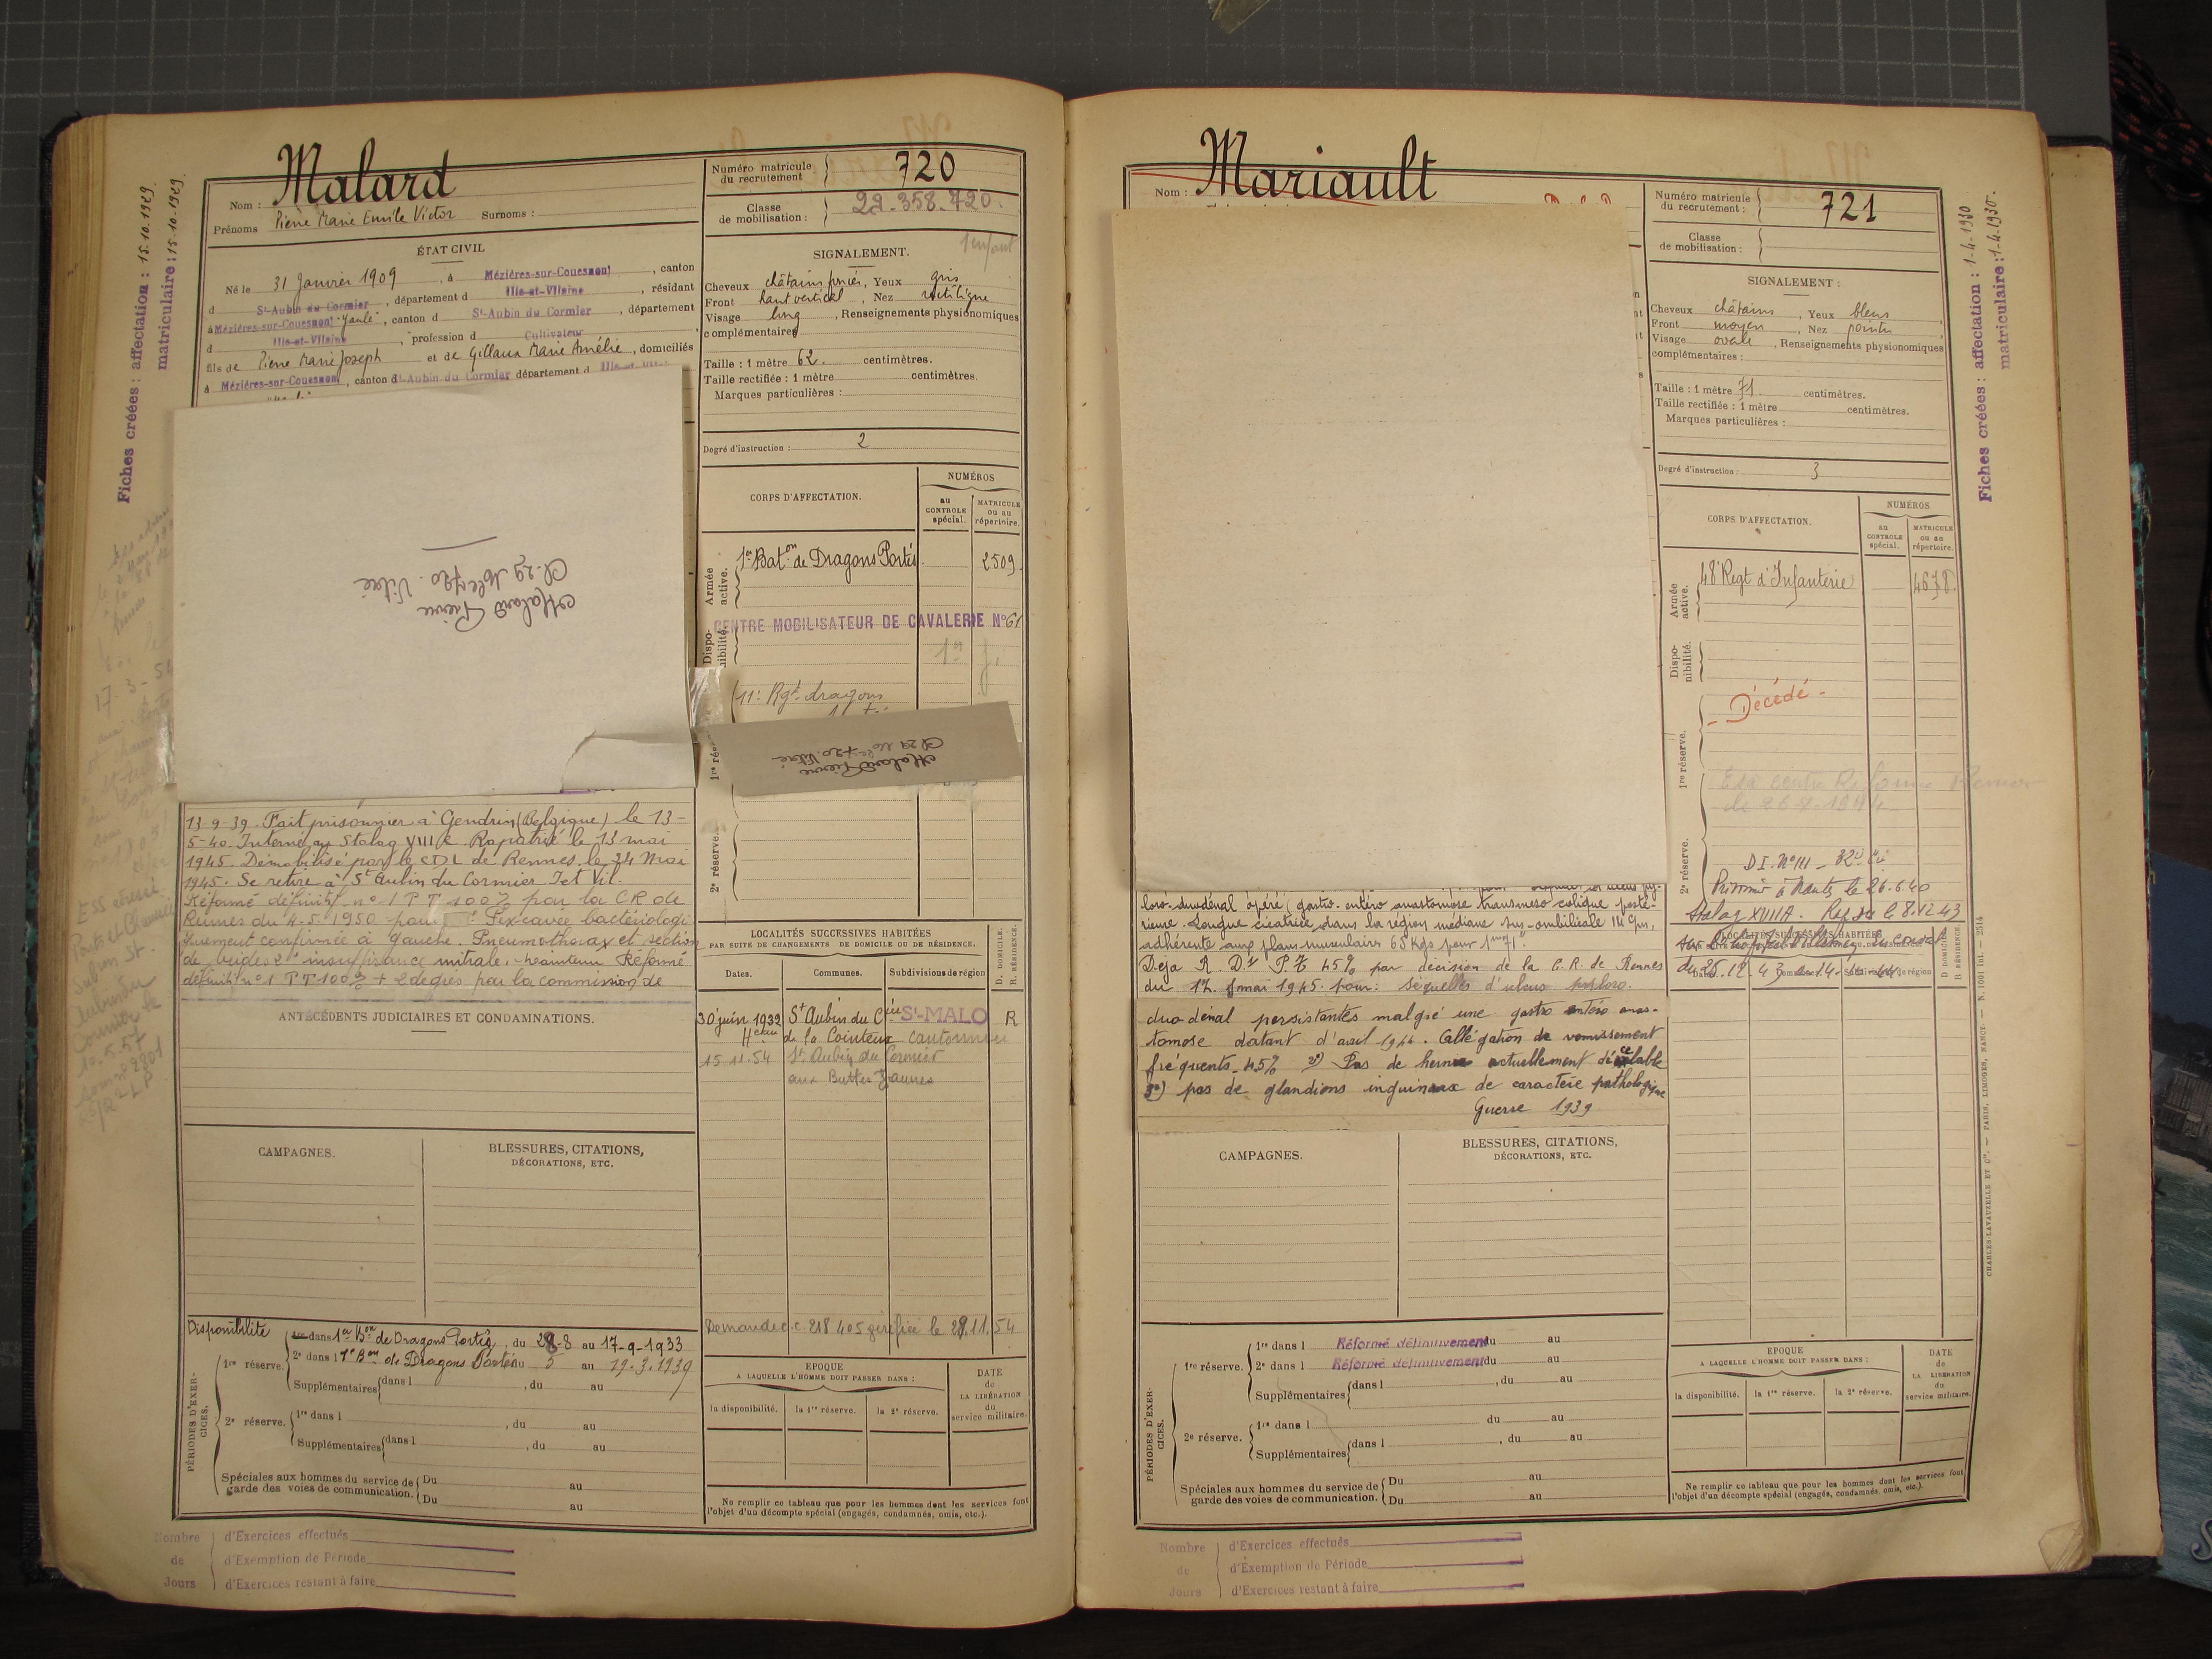 Fiches créées : affectation : 15.10.1929
matriculaire : 15.10.1929
Nom : Malard
Prénoms Pierre Marie Emile Victor Surnoms :
ÉTAT CIVIL
Né le 31 Janvier 1909, à Mézières-sur-Couesnon, canton
d St-Aubin du Cormier, département d Ille-et-Vilaine, résidant
à Mézières-sur-Couesnon, canton d St-Aubin du Cormier, département
d Ille-et-Vilaine, profession d Cultivateur
fils de Pierre Marie Joseph et de Gillaux Marie Amélie, domiciliés
à Mézières-sur-Couesnon, canton d St-Aubin du Cormier département d
Malard Pierre
Cl. 29 Mle 720. Vitré
13-9-39. Fait prisonnier à Gendrin (Belgique) le 13-
5-40. Interné au Stalag VIII C Rapatrié le 13 mai
1945. Démobilisé par le CDL de Rennes le 24 Mai
1945. Se retire à St Aubin du Cormier I et Vil.
Réformé définitif n° 1 P T 100% par la CR de
Rennes du 4-5-1950 pour
quement confirmée à gauche. Pneumothorax et section
de brides 2° insuffisance mitrale. Maintenu Réformé
définitif n° 1 P T 100% + 2 degrés par la commission de
ANTÉCÉDENTS JUDICIAIRES ET CONDAMNATIONS.
CAMPAGNES.
BLESSURES, CITATIONS,
DÉCORATIONS, ETC.
PÉRIODES D'EXERCICES.
Disponibilité
1re dans 1er Bon de Dragons Portés, du 28-8 au 17-9-1933
1re réserve. 2e dans l 1er Bon de Dragons Portés du 5 au 19.3.1939
Supplémentaires dans l , du au
2e réserve. 1re dans l , du au
Supplémentaires dans l , du au
Spéciales aux hommes du service de
garde des voies de communication.
Du au
Du au
Nombre de Jours
d'Exercices effectués
d'Exemption de Période
d'Exercices restant à faire
Numéro matricule
du recrutement 720
Classe
de mobilisation : 29.358.720.
1 enfant
SIGNALEMENT.
Cheveux châtains foncés, Yeux gris
Front haut vertical, Nez rectiligne
Visage long, Renseignements physionomiques
complémentaires
Taille : 1 mètre 62. centimètres.
Taille rectifiée : 1 mètre centimètres.
Marques particulières :
Degré d'instruction : 2
CORPS D'AFFECTATION.
NUMÉROS
au
CONTROLE
spécial.
MATRICULE
ou au
répertoire.
Armée active.
1er Baton de Dragons Portés 2509
Disponibilité.
CENTRE MOBILISATEUR DE CAVALERIE N° 61
1re réserve.
11e Rgt dragons
Malard Pierre
Cl 29 Mle 720. Vitré
2e réserve.
LOCALITÉS SUCCESSIVES HABITÉES
PAR SUITE DE CHANGEMENTS DE DOMICILE OU DE RÉSIDENCE.
Dates. Communes. Subdivisions de région
D. DOMICILE.
R. RÉSIDENCE.
30 juin 1932 St Aubin du Cier St-MALO R
de la Cointeux cantonnier
15.11.54 St Aubin du Cormier
aux Buttes Jaunes
Demande c.c. 218 405 vérifiée le 29.11.54
EPOQUE
A LAQUELLE L'HOMME DOIT PASSER DANS :
la disponibilité. la 1re réserve. la 2e réserve.
DATE
de
LA LIBÉRATION
du
service militaire.
Ne remplir ce tableau que pour les hommes dont les services font
l'objet d'un décompte spécial (engagés, condamnés, omis, etc.).
Nom : Mariault
loro-duodénal opéré (gastro-entéro anastomose transméso colique posté-
rieure. Longue cicatrice dans la région médiane sus-ombilicale 14 cm,
adhérente aux plans musculaires 65 Kgs pour 1m71".
Déjà R. Df P.T 45% par décision de la C.R. de Rennes
du 17 mai 1945 pour : séquelles d'ulcus pyloro.
duo-dénal persistantes malgré une gastro entéro anas-
tomose datant d'avril 1944. Allégation de vomissement
fréquents. 45% 2°) Pas de hernie actuellement décelable
3°) pas de glandions inguinaux de caractère pathologique
Guerre 1939
CAMPAGNES.
BLESSURES, CITATIONS,
DÉCORATIONS, ETC.
PÉRIODES D'EXERCICES.
1re réserve. 1re dans l Réformé définitivement du au
2e dans l Réformé définitivement du au
Supplémentaires dans l , du au
2e réserve. 1re dans l du au
Supplémentaires dans l , du au
Spéciales aux hommes du service de
garde des voies de communication.
Du au
Du au
Nombre de Jours
d'Exercices effectués
d'Exemption de Période
d'Exercices restant à faire
Numéro matricule
du recrutement : 721
Classe
de mobilisation :
SIGNALEMENT :
Cheveux châtains, Yeux bleus
Front moyen, Nez pointu
Visage ovale, Renseignements physionomiques
complémentaires :
Taille : 1 mètre 71 centimètres.
Taille rectifiée : 1 mètre centimètres.
Marques particulières :
Degré d'instruction : 3
CORPS D'AFFECTATION.
NUMÉROS
au
CONTROLE
spécial.
MATRICULE
ou au
répertoire.
Armée active.
48e Regt d'Infanterie 4678
Disponibilité.
1re réserve.
- Décédé -
2e réserve.
D I. N° III - 32e Cie
Prisonnier à Nantes le 26.6.40
Stalag XVIII A. Rap. le 8.12.43
LOCALITÉS SUCCESSIVES HABITÉES
D. DOMICILE
R. RÉSIDENCE.
EPOQUE
A LAQUELLE L'HOMME DOIT PASSER DANS :
la disponibilité. la 1re réserve. la 2e réserve.
DATE
de
LA LIBÉRATION
du
service militaire.
Ne remplir ce tableau que pour les hommes dont les services font
l'objet d'un décompte spécial (engagés, condamnés, omis, etc.).
Fiches créées : affectation : 1-4-1930
matriculaire : 1-4-1930.
CHARLES-LAVAUZELLE ET Cie. — PARIS, LIMOGES, NANCY. — N. 1001 int. — 2514